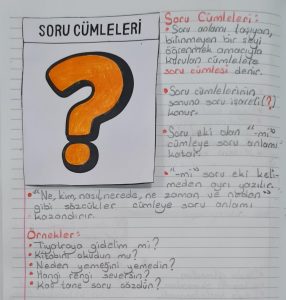 SORU CÜMLELERİ
?
Soru Cümleleri:
• Soru anlamı taşıyan,
bilinmeyen bir şeyi
öğrenmek amacıyla
kurulan cümlelere
soru cümlesi denir.
• Soru cümlelerinin
sonuna soru işareti(?)
konur.
• Soru eki olan "-mi"
cümleye soru anlamı
katar.
• "-mi" soru eki keli-
meden ayrı yazılır.
• "Ne, kim, nasıl, nerede, ne zaman ve neden"
gibi sözcükler cümleye soru anlamı
kazandırır.
Örnekler:
• Tiyatroya gidelim mi?
• Kitabını okudun mu?
• Neden yemeğini yemedin?
• Hangi rengi seversin?
• Kaç tane soru çözdün?